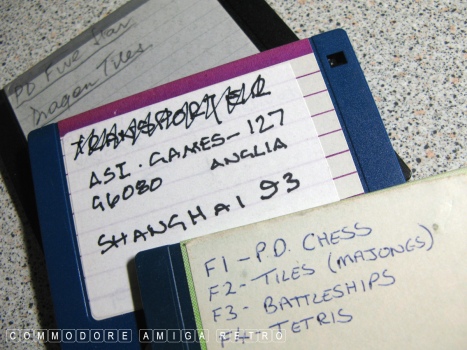 PD Five Star
Dragon Tiles
ASI. GAMES - 127
G6080 ANGLIA
SHANGHAI 93
F1 - P.D. CHESS
F2 - TILES (MAJONGS)
F3 - BATTLESHIPS
F4 - TETRIS
COMMODORE AMIGA RETRO